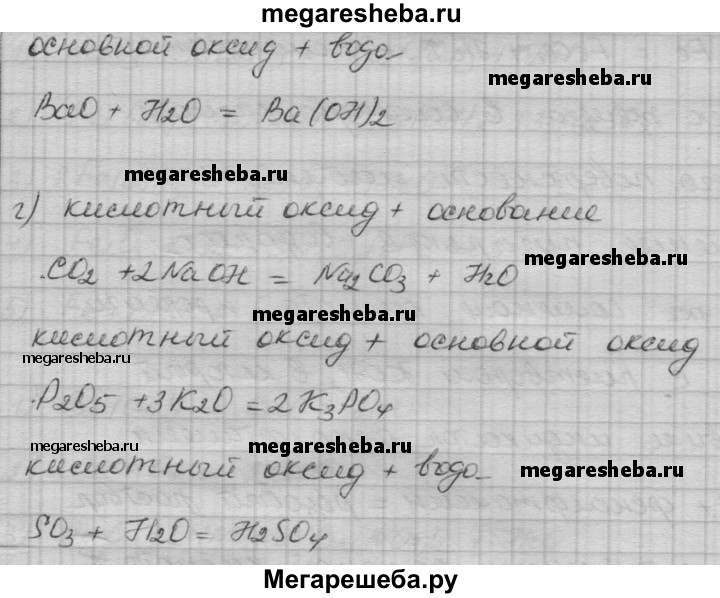 megaresheba.ru
основной оксид + вода
megaresheba.ru
BaO + H2O = Ba(OH)2
megaresheba.ru
г) кислотный оксид + основание
megaresheba.ru
CO2 + 2NaOH = Na2CO3 + H2O
megaresheba.ru
кислотный оксид + основной оксид
megaresheba.ru
P2O5 + 3K2O = 2K3PO4
megaresheba.ru
megaresheba.ru
megaresheba.ru
кислотный оксид + вода
SO3 + H2O = H2SO4
Мегарешеба.ру